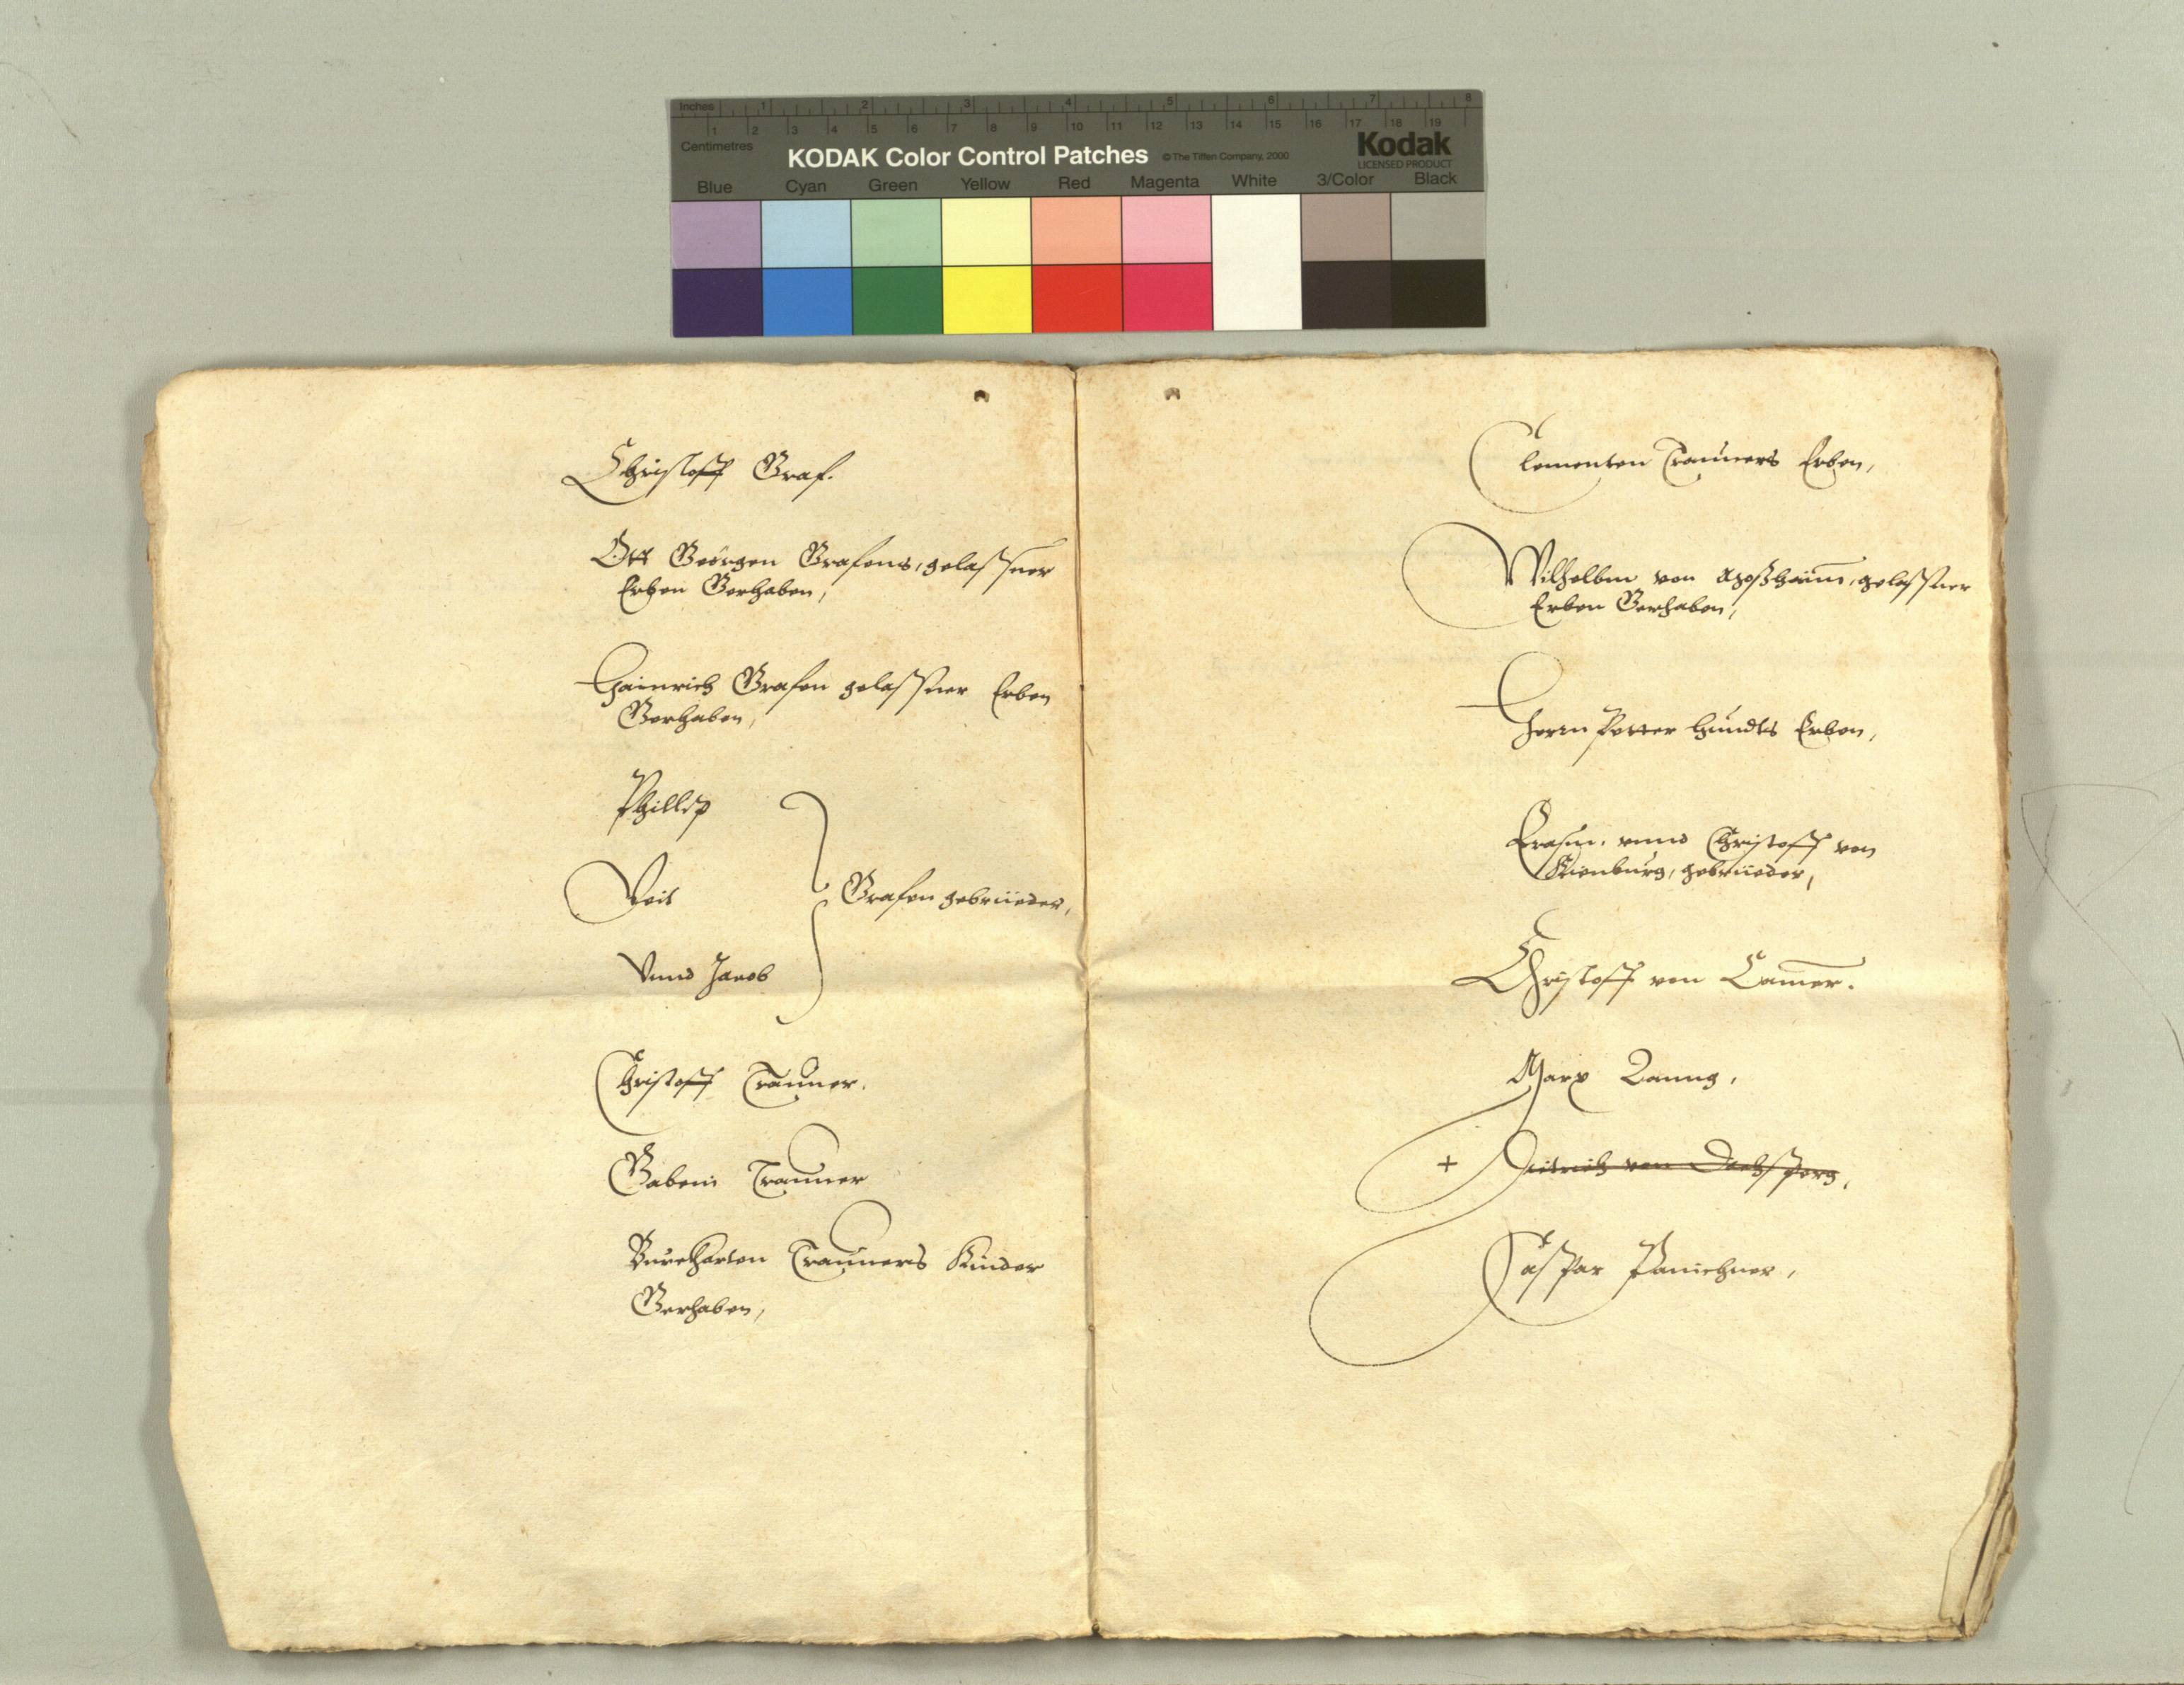 Inches 1 2 3 4 5 6 7 8
1 2 3 4 5 6 7 8 9 10 11 12 13 14 15 16 17 18 19
Centimetres
KODAK Color Control Patches ©The Tiffen Company, 2000 Kodak
LICENSED PRODUCT
Blue Cyan Green Yellow Red Magenta White 3/Color Black
Christoff Graf.
Ott Geörgen Grafens, gelassner
Erben Gerhaben,
Hainrich Grafen gelassner Erben
Gerhaben,
Phillip
Veit
Grafen gebrüeder,
Vnnd Jacob
Christoff Trauner.
Gabein Trauner
Burckharten Trauners Kinder
Gerhaben,
Clementen Trauners Erben,
Wilhelbm von Moßhaim, gelassner
Erben Gerhaben,
Herrn Petter Hundts Erben,
Erasm. vnnd Christoff von
Kienburg, gebrüeder,
Christoff von Lamer.
Marx Zanng,
+ Dietrich von Dachsperg,
Caspar Panichner,